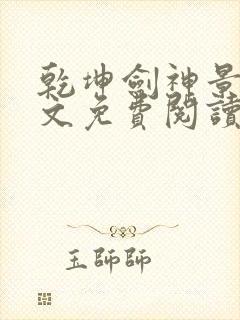 乾坤劍神景
文免費閱讀
玉師師